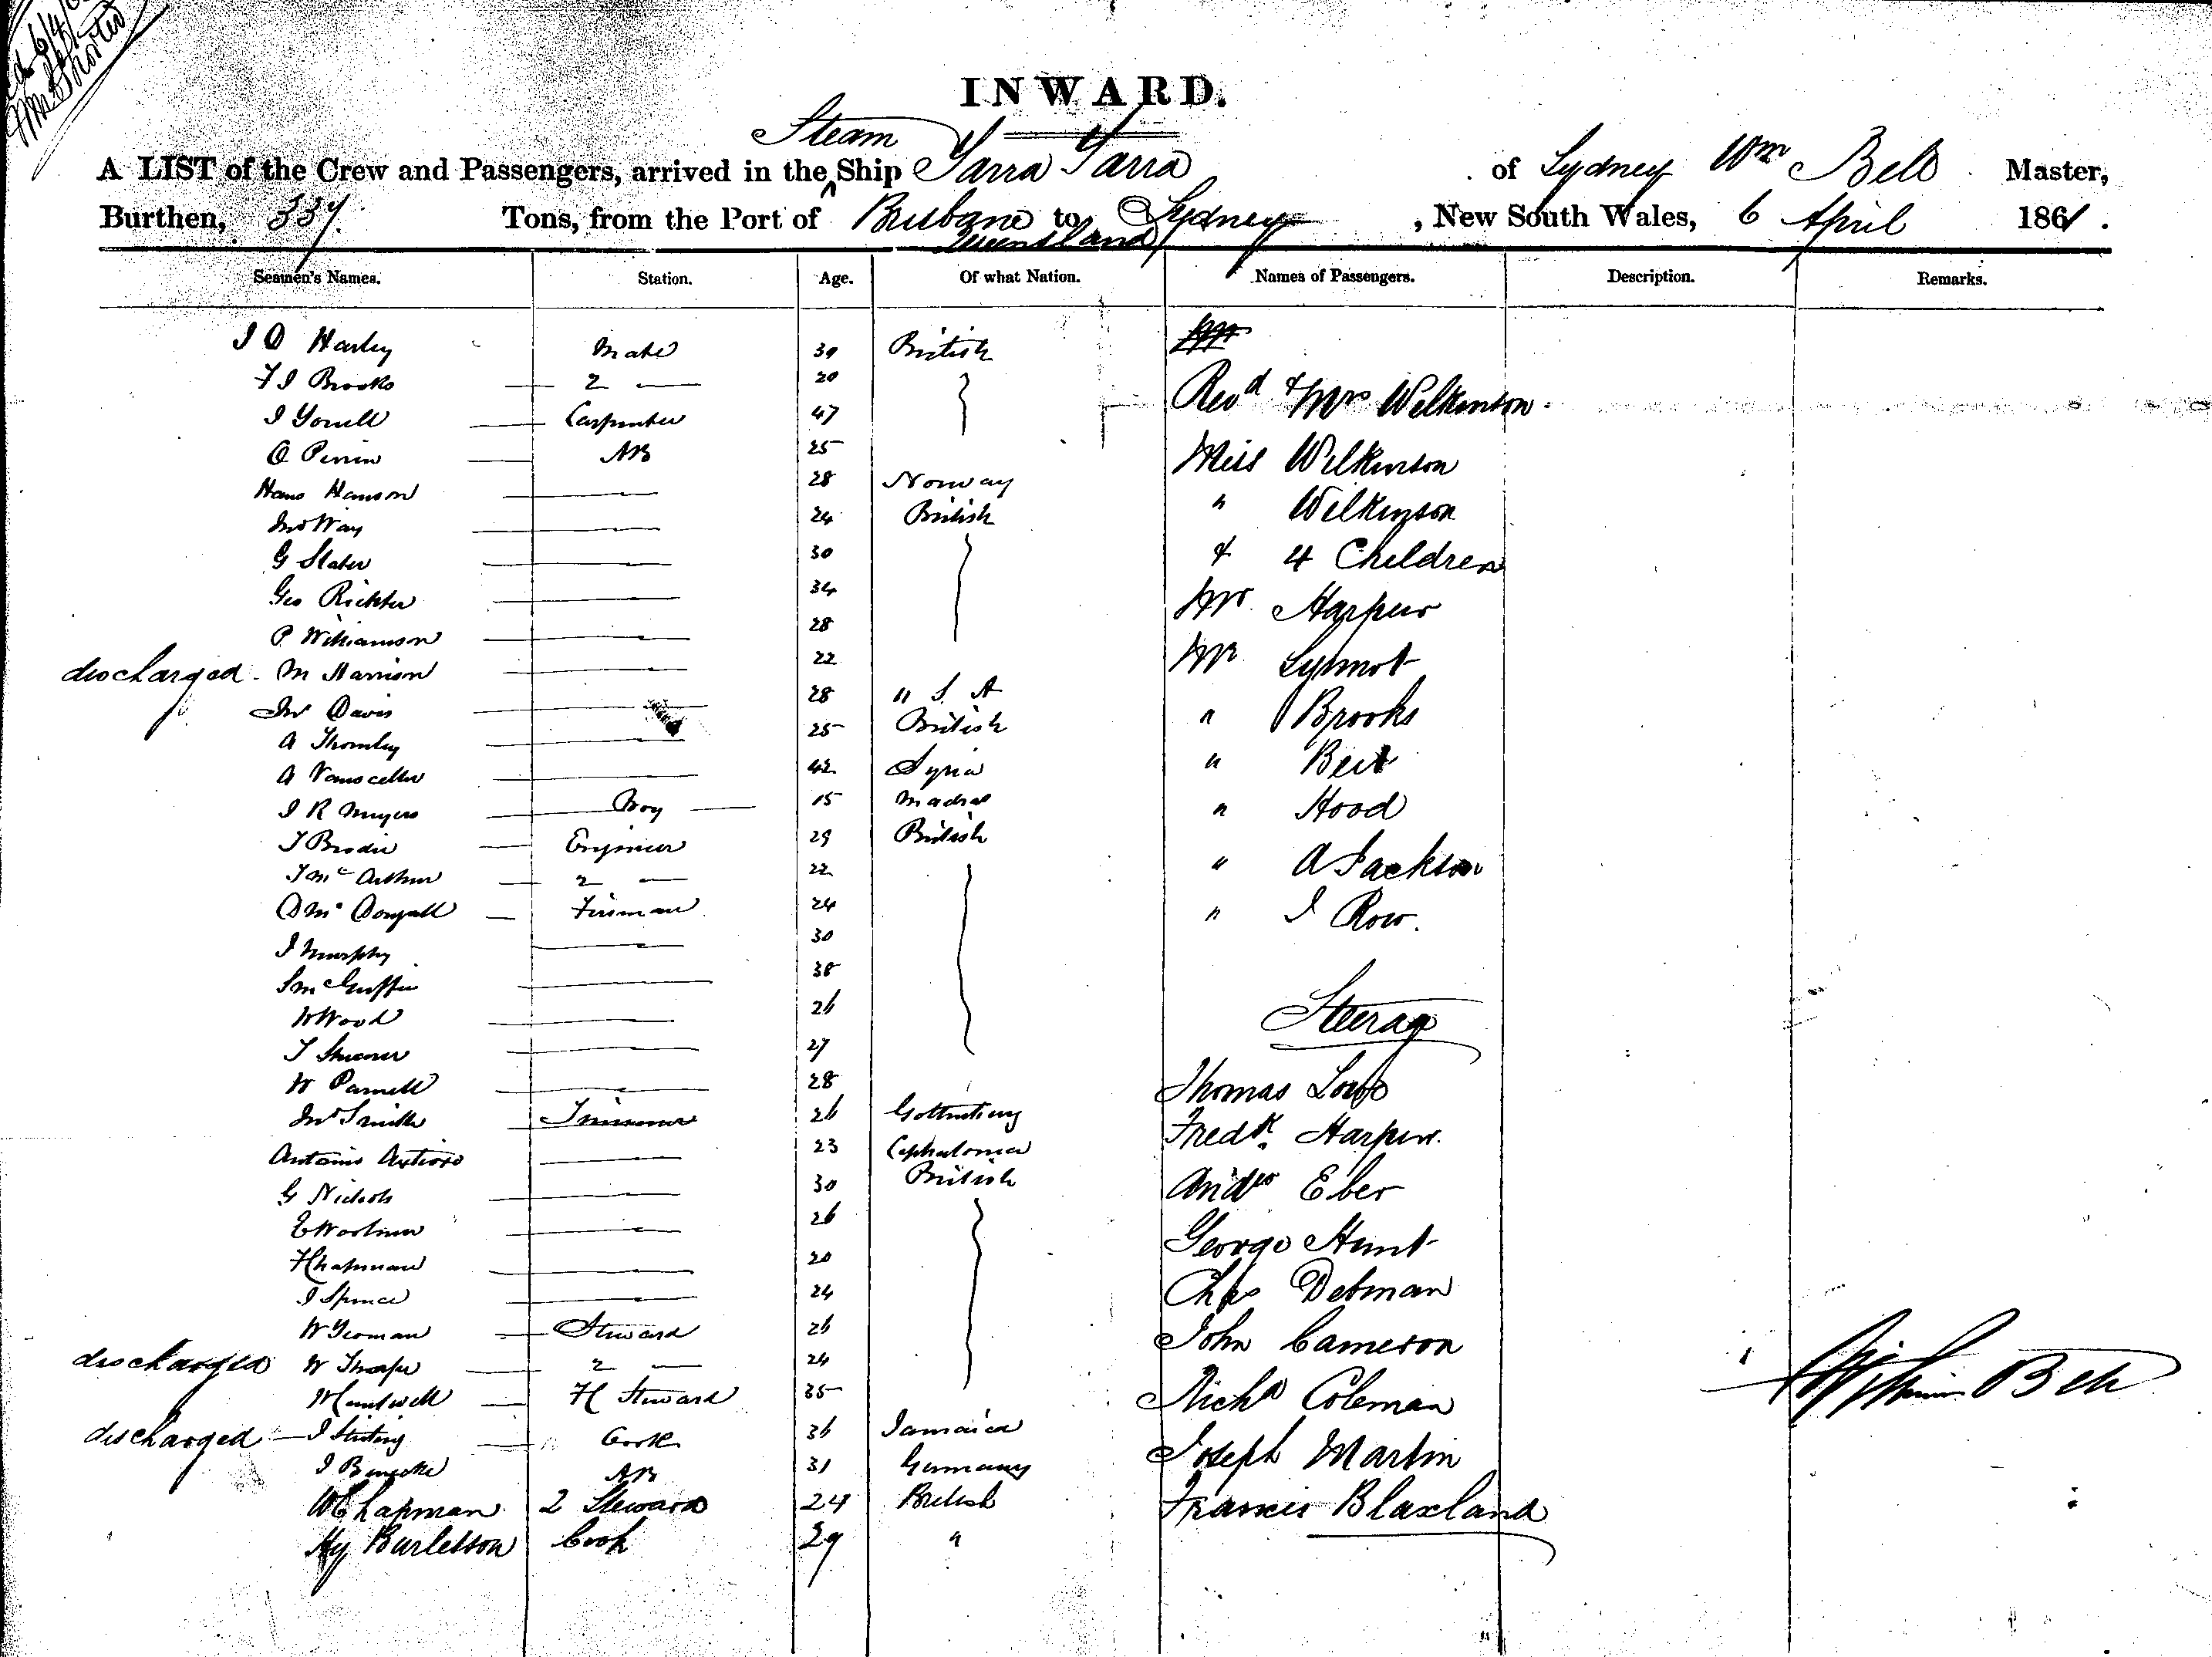 INWARD.
Steam
A LIST of the Crew and Passengers, arrived in the ^ Ship Yarra Yarra of Sydney Wm Bell Master,
Burthen, 337. Tons, from the Port of Brisbane to Sydney, New South Wales, 6 April 1861.
Queensland
Seamen's Names. Station. Age. Of what Nation. Names of Passengers. Description. Remarks.
Harley Mate 39 British
F J Brooks — 2 — 20
Revd & Mrs Wilkinson.
J Yorell — Carpenter 47
Perrin — AB 25
Miss Wilkinson
Hans Hanson 28 Norway
" Wilkinson
Jno Way 24 British
G Slater 30
& 4 Children
Geo Richter 34
Mr. Harpur
P. Williamson 28
Mr Lymot
discharged - M Harrison 22
Jno Davis 28 U S. A
" Brooks
A Thornley 25 British
" Beit
A 42 Syria
J R Myers — Boy — 15 Madras
" Hood
J Brodie — Engineer 29 British
" A Jackson
J McArthur — 2 — 22
D Mc Dougall — Fireman 24
" J Row.
J Murphy 30
S McGuffie 38
Steerage
W Wood 26
T Shearer 27
W Parnell 28
Thomas Lowe
Jno Smith Trimmer 26 Gottenburg
Fredk. Harpur.
Antonio 23 Cephalonia
G Nichols 30 British
Andw Eber
26
George Hunt
Chapman 20
J Spence 24
Chas Detman
W Yeoman — Steward 26
John Cameron
discharged W Thorpe — 2 — 24
35 Steward
Richd Coleman
William Bell
discharged — J Stirling — Cook 36 Jamaica
Joseph Martin
J AB 31 Germany
W Chapman 2 Steward 24 British
Francis Blaxland
Hy Burletson Cook 29 "